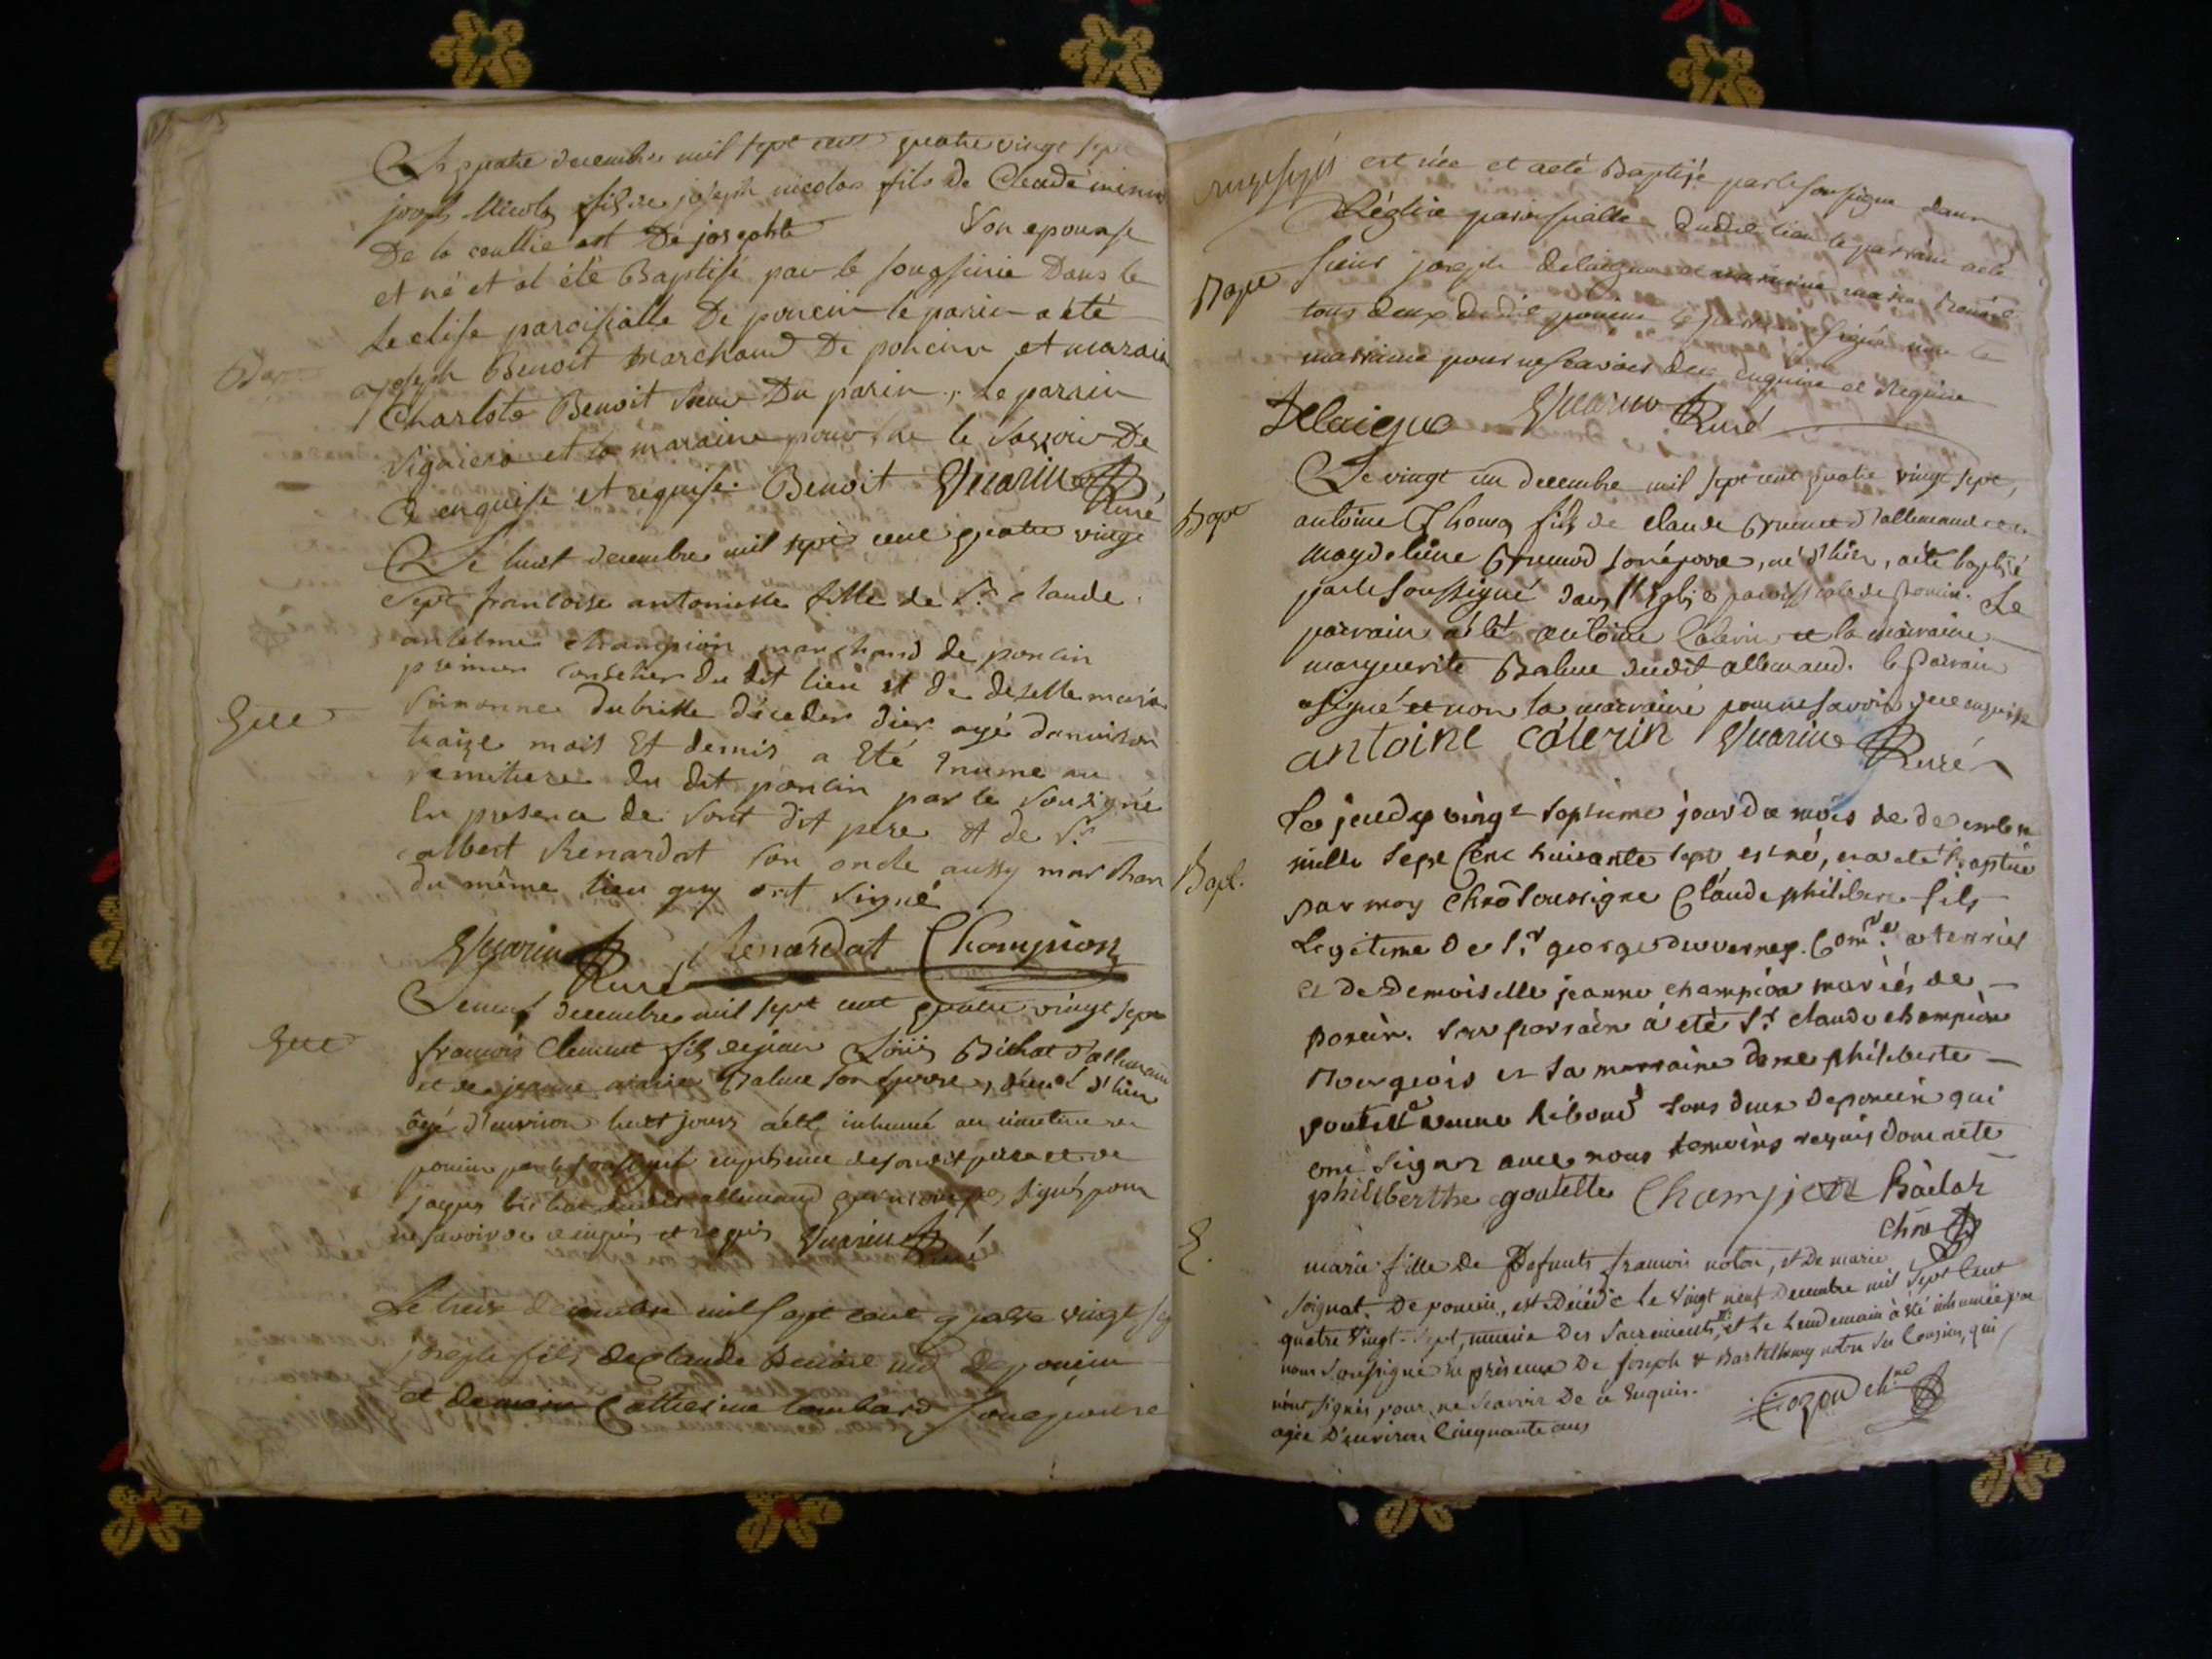 Le quatre decembre mil sept cent quatre vingt sept
joseph Nicolas fils de joseph nicolas fils de Claude
De la et De josephte Son epouse
est né et at été Baptisé par le sousigné Dans le
Leclise paroisialle De poncin le parin a été
joseph Benoit Marchand De poncin et maraine
Charlote Benoit Seur Du parin, Le parrin
Signiera et la maraine pour ne le Savoir De
Ce enquise et requise. Benoit Guarin Curé
Bap
Le huit decembre mil sept cent quatre vingt
Sept francoise antoinette fille de Sr Claude
antelme champion marchand de poncin
premier conselier du dit lieu et de deselle marie
Simonne dubrille décédée dier agé danviron
traize mois Et demis a Eté Enume au
semitiere du dit poncin par le sousigné
En presence de sont dit pere et de Sr
albert Renardat son oncle aussy marchan
du même lieu quy ont signé
Guarin Curé Renardat Champion
Le neuf decembre mil sept cent quatre vingt sept
francois Clement fils de jean Louis Bichat d'allemand
et de jeanne marie Balme son epouse, d'hier
âgé d'environ huit jours a été inhumé au cimetiere de
poncin par le soussigné en presence de son dit pere et de
jaques bichat dudit allemand qui n'ont pas signés pour
ne savoir de ce enquis et requis Guarin Curé
Le treize decembre mil sept cent quatre vingt sep
joseph fils de Claude Benoit md de poncin
et de marie Catherine Lombard son epouse
est née et a eté Baptisé par le soussigné dans
L'église paroissialle dudit lieu le parrain a été
Bapt
sieur joseph Delaigue et marraine marie Benoit
tous deux dudit poncin le parrain signé non la
marraine pour ne scavoir de ce enquise et Requise
Delaigue Guarin Curé
Le vingt un decembre mil sept cent quatre vingt sept,
Bapt
antoine Thomas fils de claude Brunet d'allemand et de
Magdeleine son épouse, né d'hier, a été baptisé
par le Soussigné dans l'Eglise paroissiale de Poncin. Le
parrain a été antoine Calerin et la marraine
marguerite Balme dudit allemand. le Parrain
a signé et non la marraine pour ne savoir de ce enquise
antoine calerin Guarin Curé
Le jeudy vingt septieme jour du mois de decembre
mille sept Cent huitante sept est né, et a eté baptisé
Bapt.
par moy Chne soussigne Claude philibert fils
Legitime De Sr george duverney. Comre a terrier
et de Demoiselle jeanne champion mariés de
poncin. son parrain a été Sr claude champion
Bourgeois et sa marraine dame philiberte
goutelle veuve Riboud tous deux de poncin qui
ont signer avec nous temoins requis dont acte
philiberthe goutelle Champion
Chne
E.
marie fille De Defunts francois noton, et De marie
Soignat. De poncin, est Décédée le vingt neuf Decembre mil Sept Cent
quatre Vingt-Sept, munie Des Sacrements, et Le Lendemain à été inhumée par
nous Soussigné En présence De Joseph & Barthelemy noton ses Cousins, qui
n'ont signés pour ne Scavoir De ce Enquis.
agée D'environ Cinquante ans Cozon chne